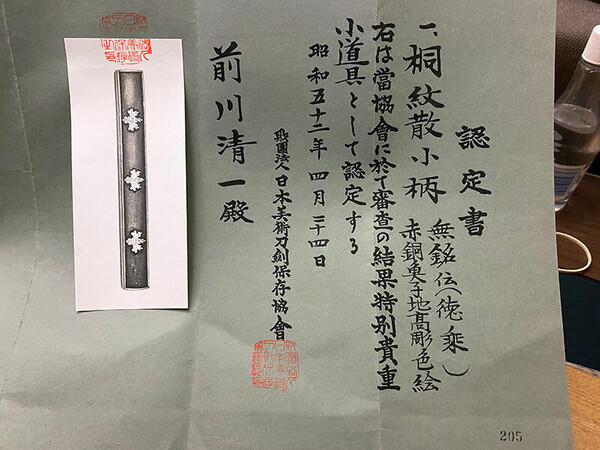 認定書
一、桐紋散小柄
無銘伝(徳乗)
赤銅魚子地高彫色絵
右は當協會に於て審査の結果特別貴重
小道具として認定する
昭和五十二年四月二十四日
財團法人日本美術刀劍保存協會
前川清一殿
205